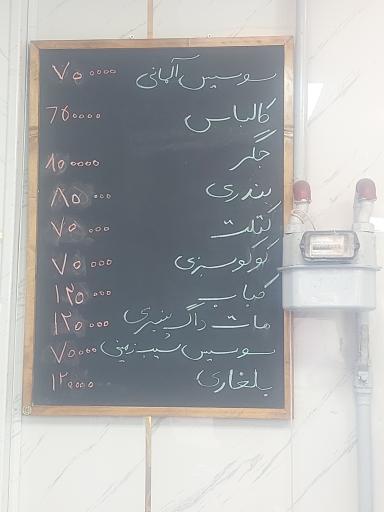 سوسیس آلمانی ۷۵۰۰۰۰
کالباس ۶۵۰۰۰۰
جگر ۸۵۰۰۰۰
بندری ۸۵۰۰۰۰
کتلت ۷۵۰۰۰۰
کوکو سبزی ۷۵۰۰۰۰
کباب ۱۲۵۰۰۰۰
هات داگ پنیری ۱۲۰۰۰۰۰
سوسیس سیب زمینی ۷۵۰۰۰۰
بلغاری ۱۲۰۰۰۰۰